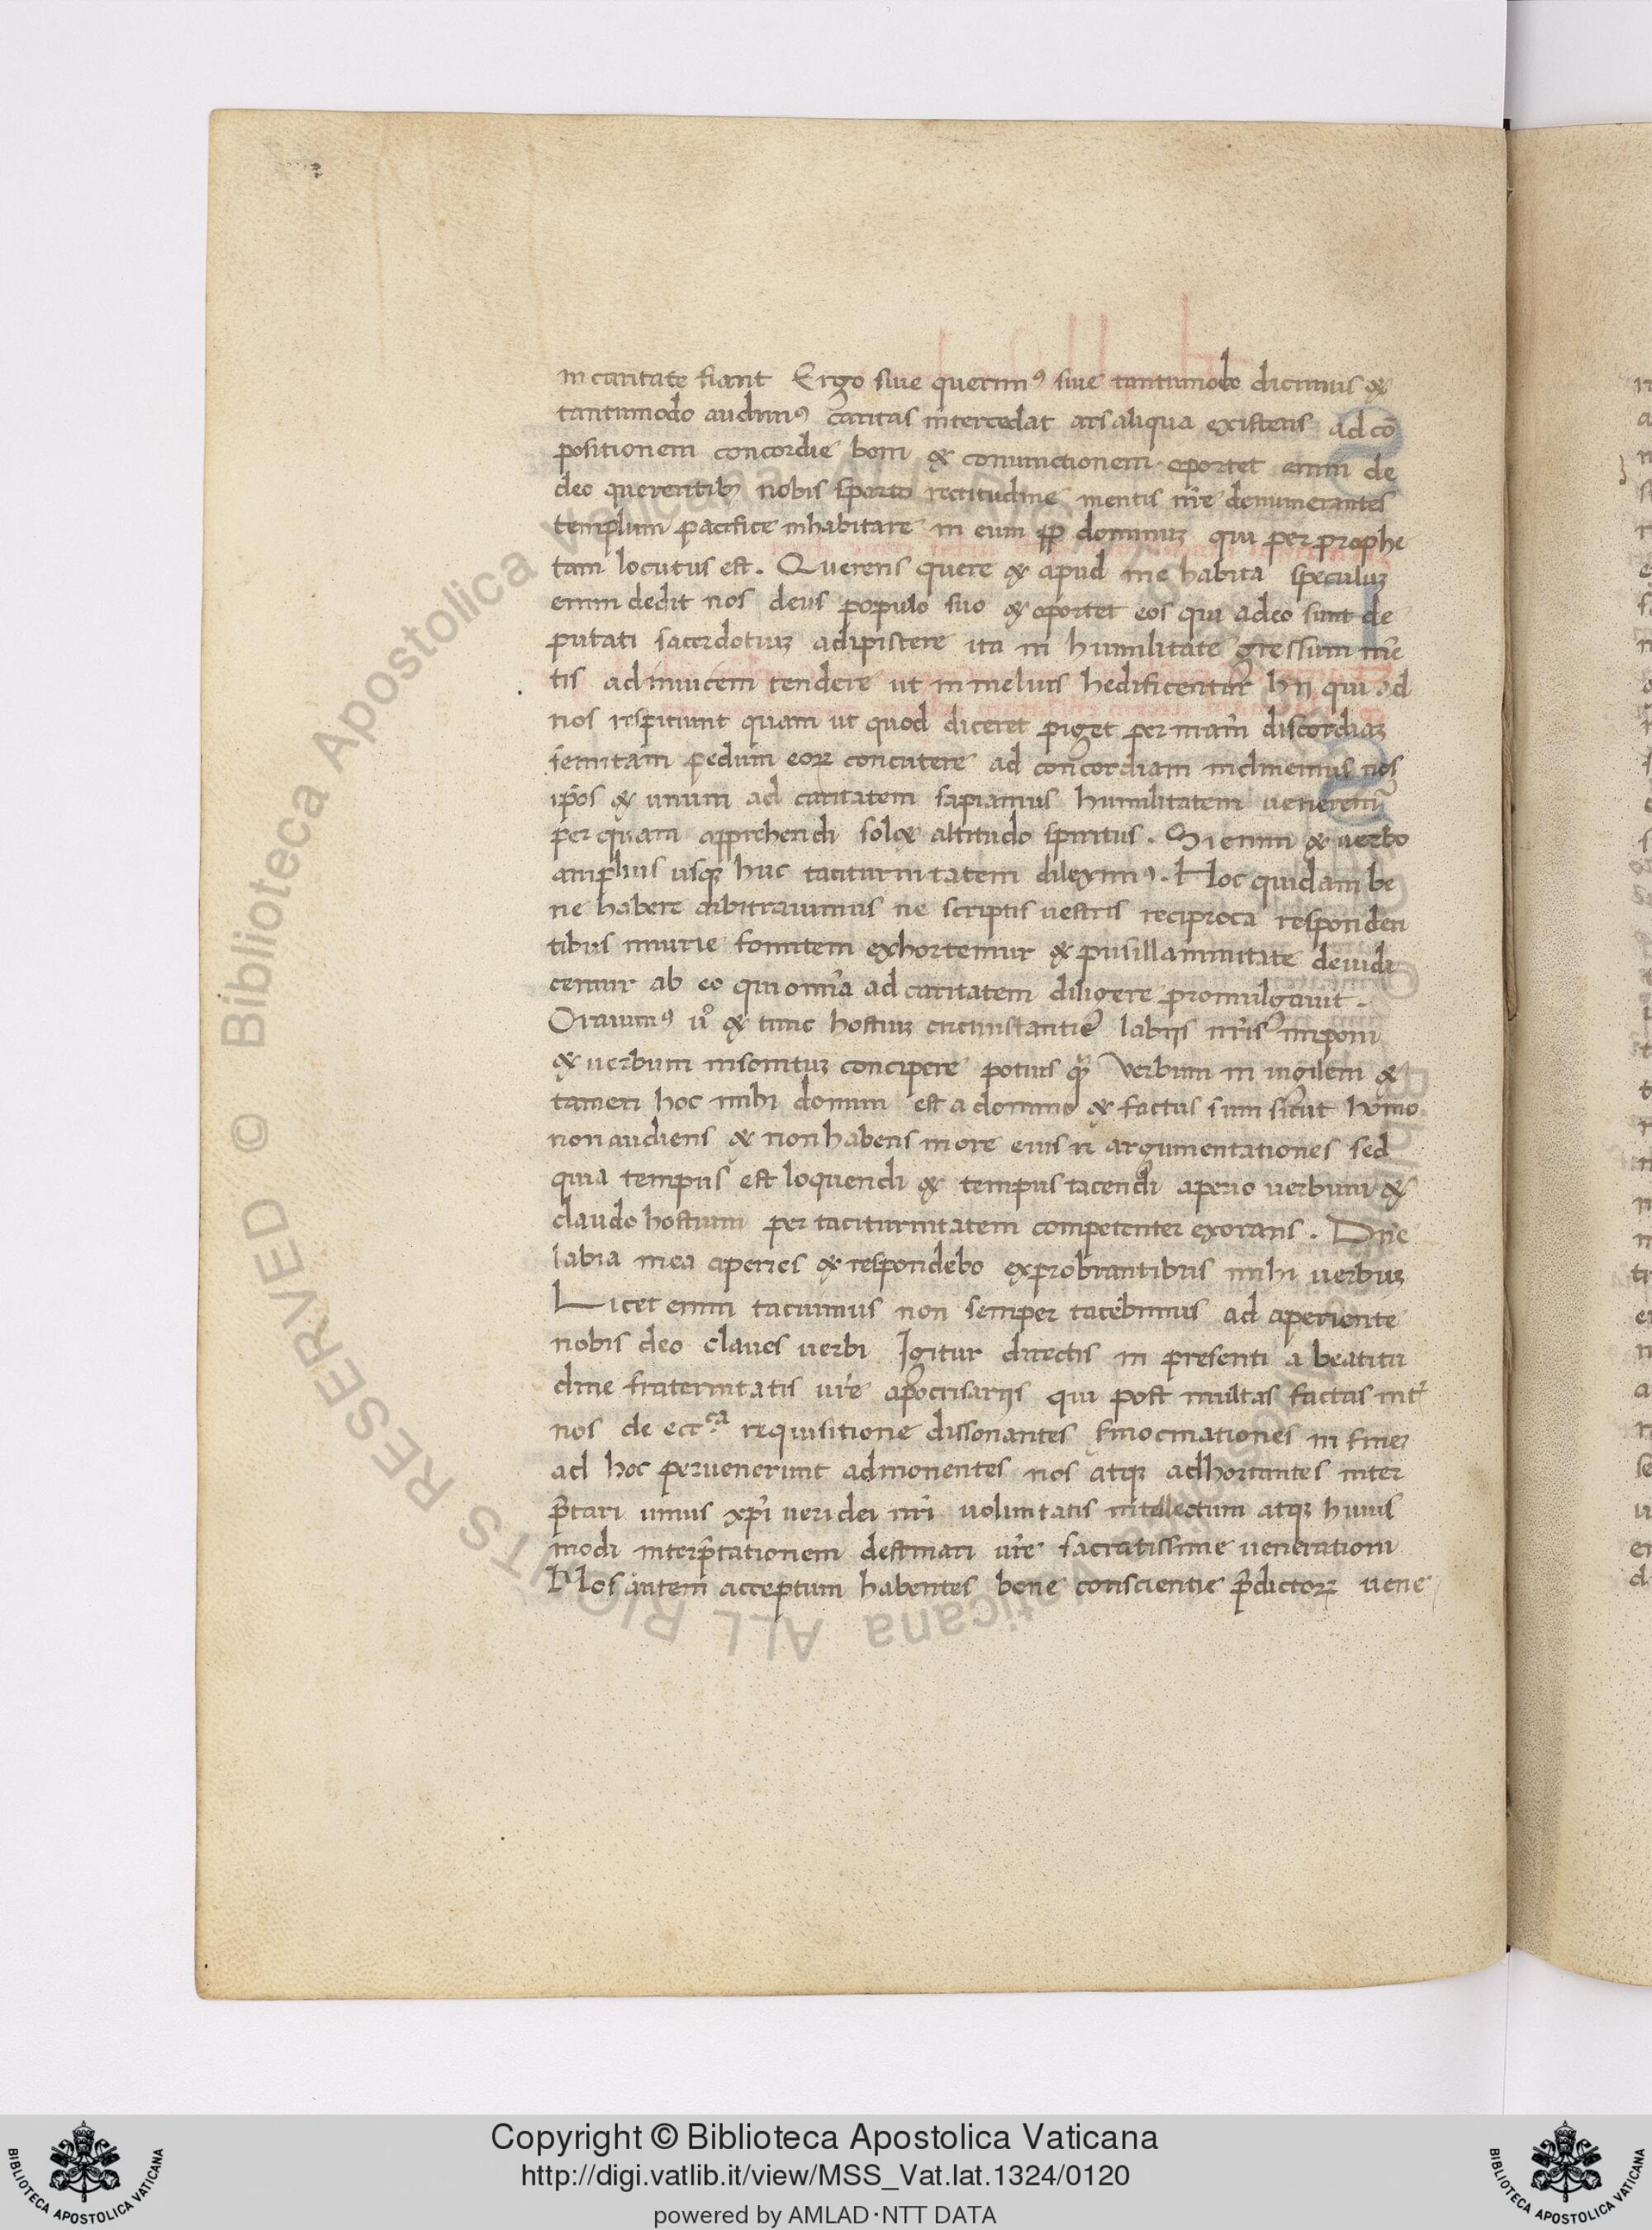 in caritate fiant Ergo siue querimꝰ siue tantumodo dicimus &
tantumodo audimꝰ caritas intercedat ars aliqua existens ad cō
positionem concordie boni & coniunctionem oportet enim de
deo querentibꝫ nobis rectitudine mentis nr̄e denumerantes
templum pacifice inhabitare in eum dominuꝫ qui per prophe
tam locutus est. Querens quere & apud me habita speculuꝫ
enim dedit nos deus populo suo & oportet eos qui adeo sunt de
putati sacerdotiuꝫ adipistere ita in humilitate gressum mē
tis adinuicem tendere ut in melius hedificentur hij qui ad
nos respiciunt quam ut quod diceret piget per nr̄am discordiaꝫ
semitam pedum eoꝝ concutere ad concordiam inclinemus nos
ip̄os & unum ad caritatem sapiamus humilitatem
per quam apprehendi solꝫ altitudo spiritus. Si enim & uerbo
amplius usqꝫ huc taciturnitatem dileximꝰ. Hoc quidam be
ne habere arbitrauimus ne scriptis uestris reciproca responden
tibus iniurie fomitem exhortemur & pusillanimitate deiudi
cemur ab eo qui om̄ia ad caritatem diligere promulgauit.
Orauimꝰ ů & tunc hostiuꝫ circunstantie labijs nr̄is imponi
& uerbum insonituꝫ concipere potius qꝫ verbum in uigilem &
tamen hoc mihi donum est a domino & factus sum sicut homo
non audiens & non habens in ore eius n̄ argumentationes sed
quia tempus est loquendi & tempus tacendi aperio uerbum &
claudo hostium per taciturnitatem competenter exorans. Dn̄e
labia mea aperies & respondebo exprobrantibus mihi uerbuꝫ
Licet enim tacuimus non semper tacebimus ad aperiente
nobis deo claues uerbi Igitur directis in presenti a beatitu
dine fraternitatis ur̄e apocrisarijs qui post multas factas int̄
nos de ecc.ca requisitione dissonantes in fine
ad hoc peruenerunt admonentes nos atqꝫ adhortantes inter
p̄tari unius xp̄i ueri dei nr̄i uoluntatis intellectum atqꝫ huius
modi interp̄tationem destinari ur̄e sacratissime uenerationi
Nos autem acceptum habentes bone conscientie p̄dictoꝝ uene
Copyright © Biblioteca Apostolica Vaticana
http://digi.vatlib.it/view/MSS_Vat.lat.1324/0120
powered by AMLAD·NTT DATA
BIBLIOTECA APOSTOLICA VATICANA
BIBLIOTECA APOSTOLICA VATICANA